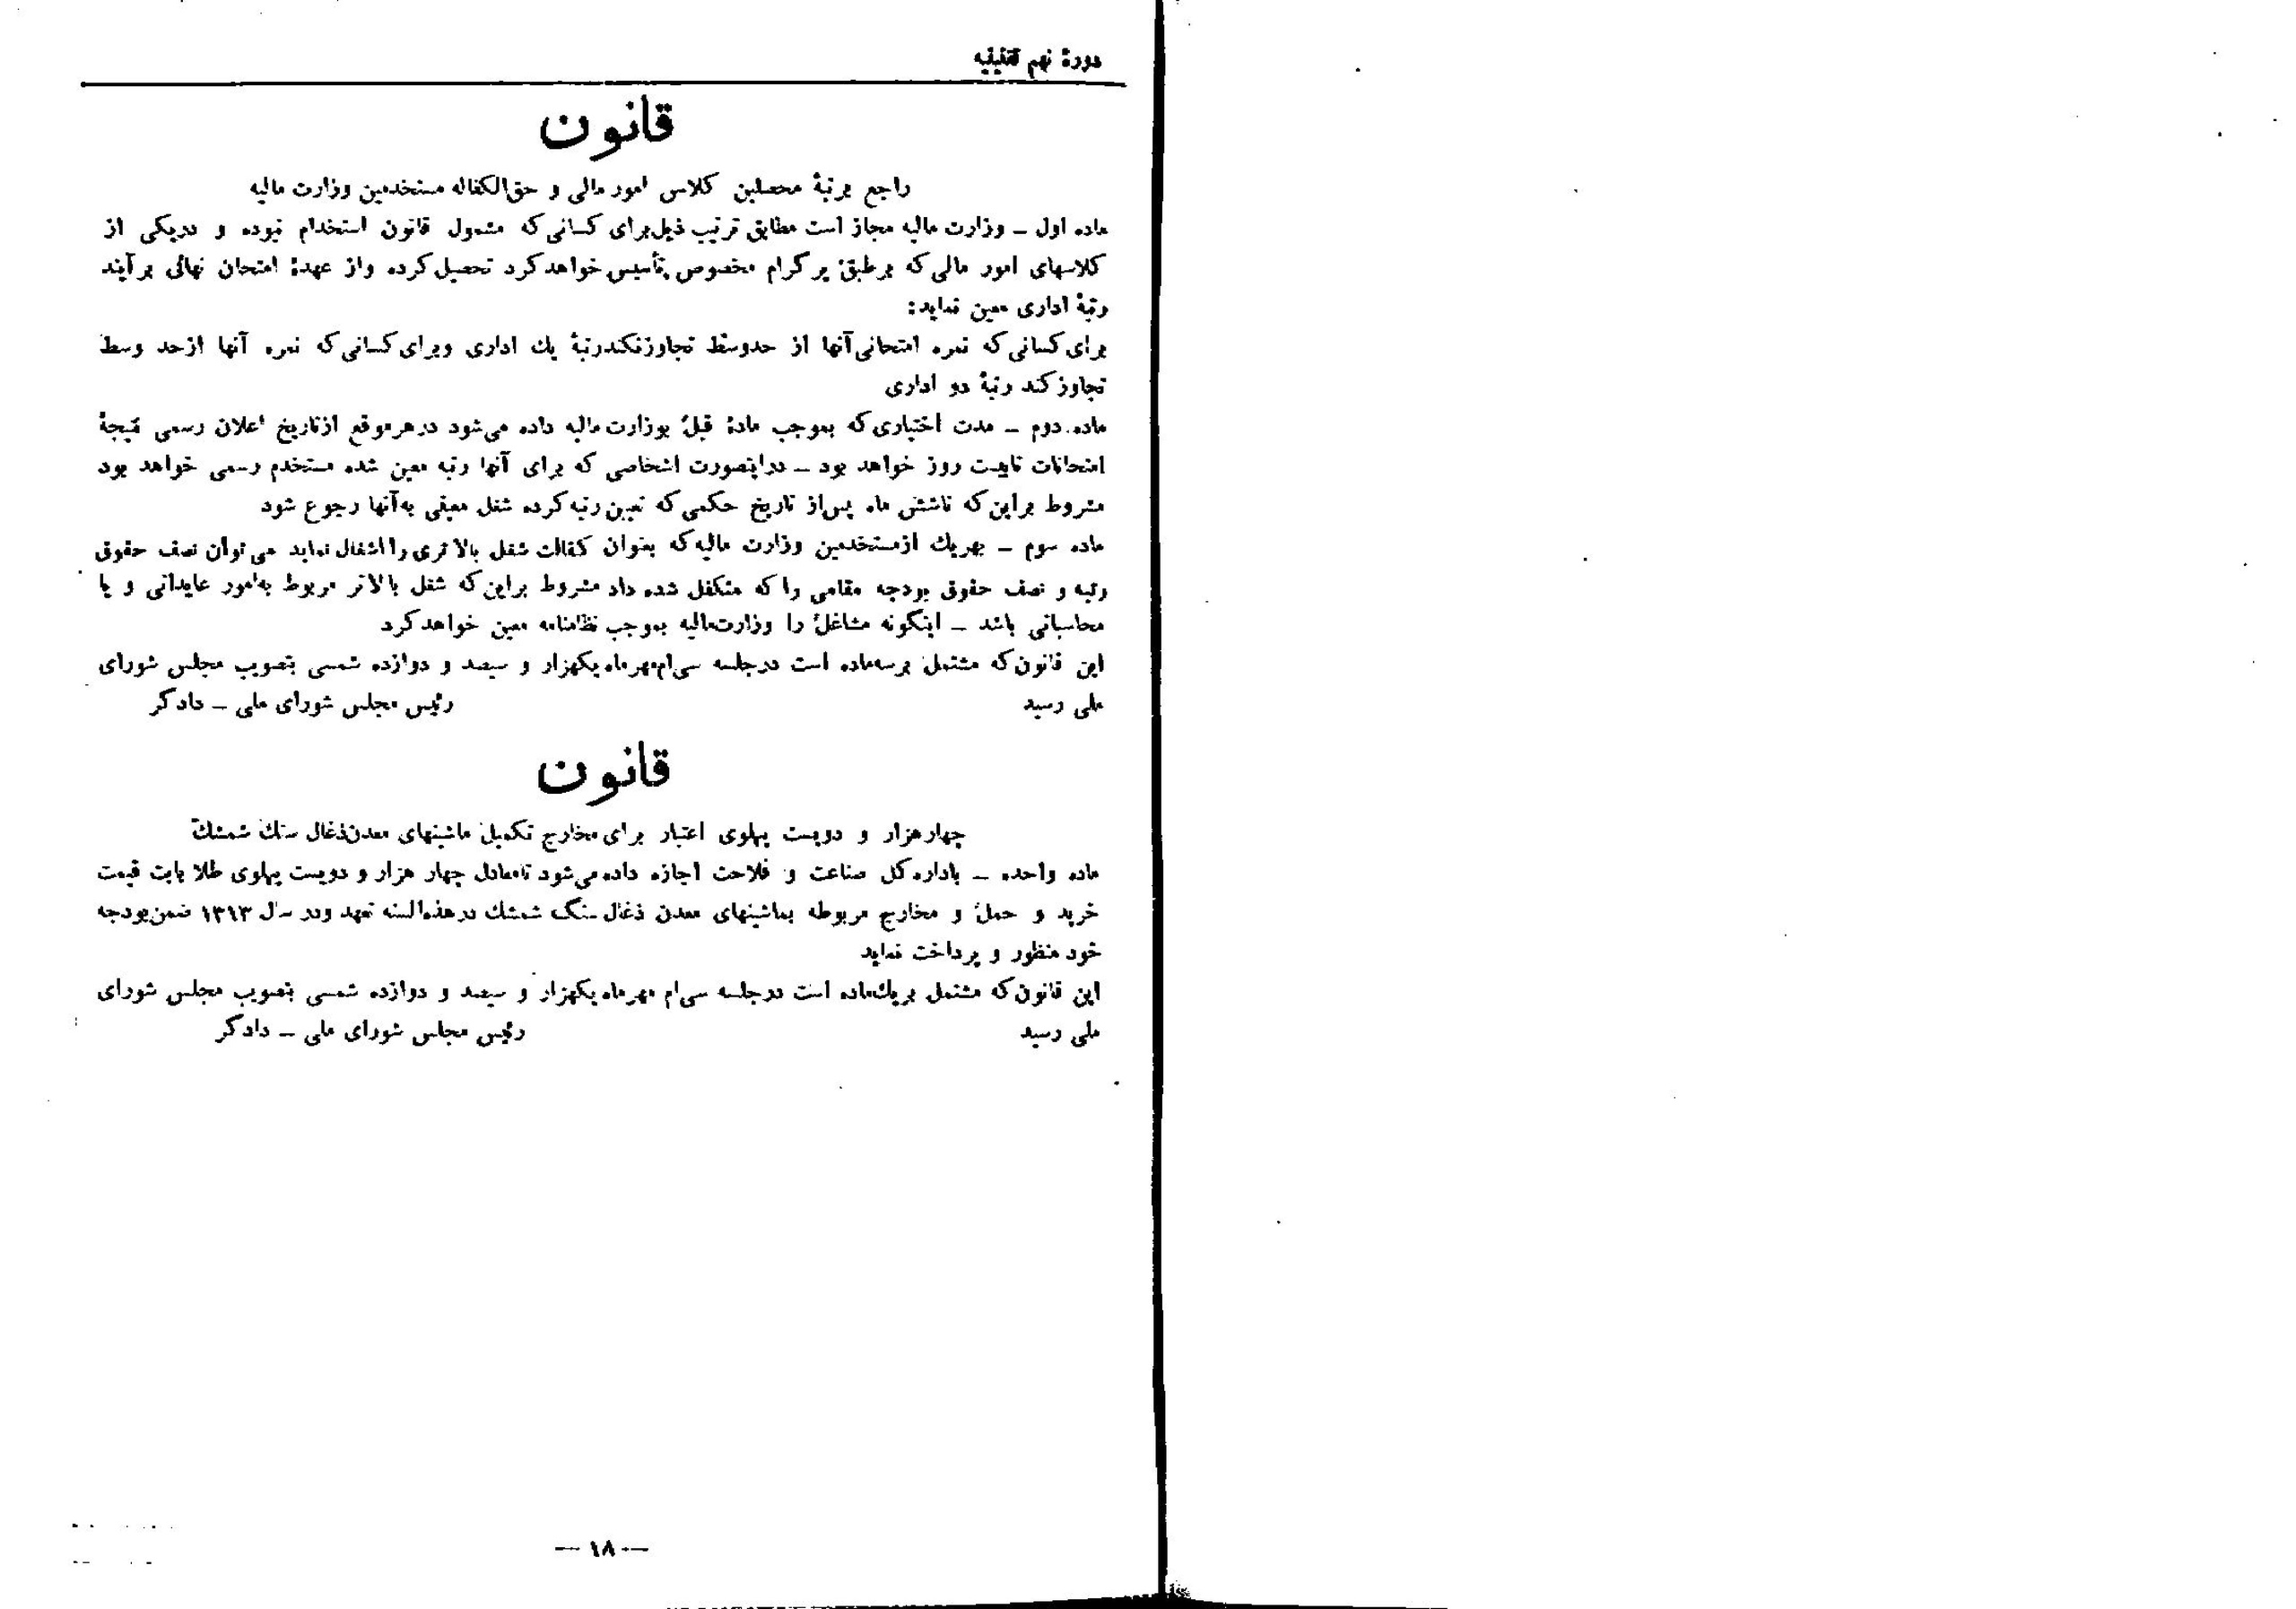 دورهٔ نهم تقنینیه
قانون
راجع برتبهٔ محصلین کلاس امور مالی و حق‌الکفاله مستخدمین وزارت مالیه
ماده اول – وزارت مالیه مجاز است مطابق ترتیب ذیل برای کسانی که مشمول قانون استخدام نبوده و دریکی از
کلاسهای امور مالی که برطبق پرگرام مخصوص تأسیس خواهد کرد تحصیل کرده واز عهدهٔ امتحان نهائی برآیند
رتبهٔ اداری معین نماید:
برای کسانی که نمره امتحانی آنها از حدوسط تجاوزنکند رتبهٔ یك اداری وبرای کسانی که نمره آنها ازحد وسط
تجاوز کند رتبهٔ دو اداری
ماده دوم – مدت اختیاری که بموجب مادهٔ قبل بوزارت مالیه داده می‌شود درهرموقع ازتاریخ اعلان رسمی نتیجهٔ
امتحانات تابیست روز خواهد بود – دراینصورت اشخاصی که برای آنها رتبه معین شده مستخدم رسمی خواهد بود
مشروط براین که تاشش ماه پس‌از تاریخ حکمی که تعیین رتبه کرده شغل معینی به‌آنها رجوع شود
ماده سوم – بهریك ازمستخدمین وزارت مالیه که بعنوان کفالت شغل بالاتری را اشغال نماید می‌توان نصف حقوق
رتبه و نصف حقوق بودجه مقامی را که متکفل شده داد مشروط براین که شغل بالاتر مربوط به‌امور عایداتی و یا
محاسباتی باشد – اینگونه مشاغل را وزارت‌مالیه بموجب نظامنامه معین خواهد کرد
این قانون که مشتمل برسه‌ماده است درجلسه سی‌ام‌مهرماه یکهزار و سیصد و دوازده شمسی بتصویب مجلس شورای
ملی رسید رئیس مجلس شورای ملی – دادگر
قانون
چهارهزار و دویست پهلوی اعتبار برای مخارج تکمیل ماشینهای معدن‌ذغال سنك شمشك
ماده واحده – باداره کل صناعت و فلاحت اجازه داده می‌شود تامعادل چهار هزار و دویست پهلوی طلا بابت قیمت
خرید و حمل و مخارج مربوطه بماشینهای معدن ذغال سنگ شمشك درهذه‌السنه تعهد ودر سال ۱۳۱۳ ضمن‌بودجه
خود منظور و پرداخت نماید
این قانون که مشتمل بریك‌ماده است درجلسه سی‌ام مهرماه یکهزار و سیصد و دوازده شمسی بتصویب مجلس شورای
ملی رسید رئیس مجلس شورای ملی – دادگر
— ۱۸ —